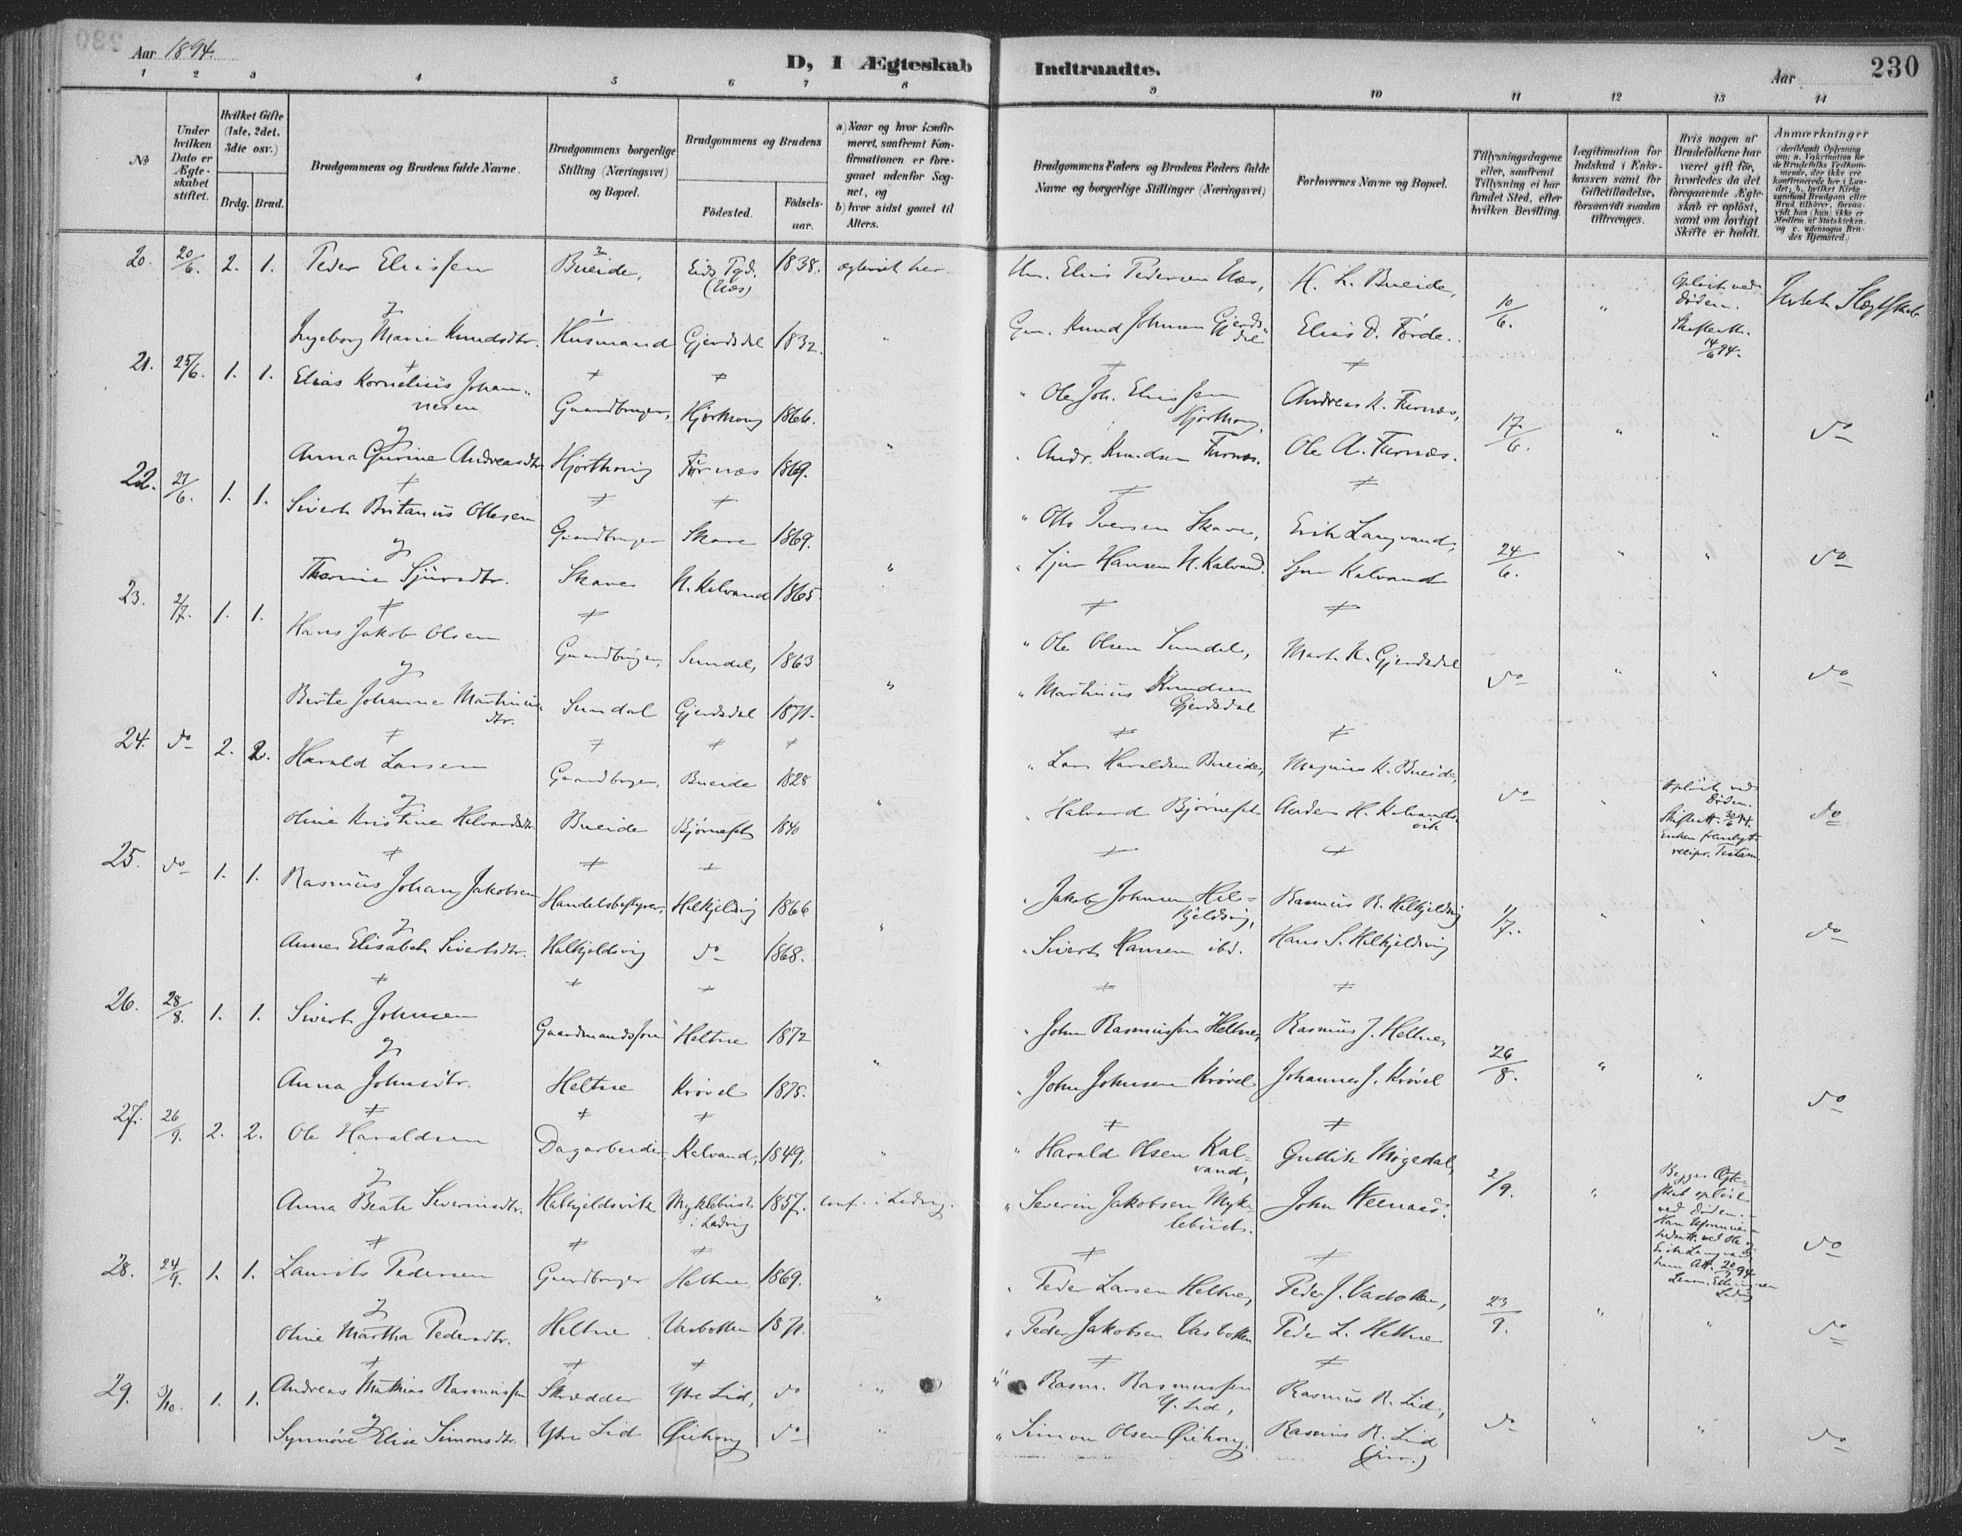 Aar 1894.
D, I Ægteskab
Indtraadte.
Aar
230
1 2 3 4 5 6 7 8
9 10 11 12 13 14
No
Under hvilken Dato er Ægteskabet stiftet.
Hvilket Gifte (1ste, 2det, 3die osv.)
Brdg. Brud.
Brudgommens og Brudens fulde Navne.
Brudgommens borgerlige Stilling (Næringsvei) og Bopæl.
Brudgommens og Brudens
Fødested.
Fødselsaar.
a) Naar og hvor konfirmeret, saafremt Konfirmationen er foregaaet udenfor Sognet, og
b) hvor sidst gaaet til Alters.
Brudgommens Faders og Brudens Faders fulde Navne og borgerlige Stillinger (Næringsvei)
Forlovernes Navne og Bopæl.
Tillysningsdagene eller, saafremt Tillysning ei har fundet Sted, efter hvilken Bevilling.
Legitimation for Indskud i Enkekassen samt for Giftetilladelse, forsaavidt saadan tiltrænges.
Hvis nogen af Brudefolkene har været gift før, hvorledes da det foregaaende Ægteskab er opløst, samt om lovligt Skifte er holdt.
Anmærkninger
20. 20/6. 2. 1. Peder Eliassen Bueide, Eids Pgd. (Næs) 1838. Elias Pedersen Næs, K. L. Bueide, 10/6. " Opløst ved Døden.
Ingeborg Marie Knudsdtr. Husmand Gjerdsdal 1832. " Knud Johnsen Gjerdsdal Elias D. Førde. Skifteatt. 14/6 94.
21. 25/6. 1. 1. Elias Kornelius Johannesen Gaardbruger, Hjorthoug 1866. " Ole Joh. Eliassen Hjorthoug, Andreas K. Furnæs, 17/6. " " do
Anna Gurine Andreasdtr. Hjorthoug Furnæs 1869. " Andr. Knudsen Furnæs. Ole A. Furnæs.
22. 27/6. 1. 1. Sivert Britanus Ottesen Gaardbruger Skare 1869. " Otto Iversen Skare, Erik Langvand, 24/6. " " do
Thorine Sjursdtr. Skare N. Kalvand 1865. " Sjur Hansen N. Kalvand. Sjur Kalvand
23. 2/7. 1. 1. Hans Jakob Olsen Gaardbruger, Sundal, 1863 " Ole Olsen Sundal, Mart. K. Gjerdsdal do " " do
Berte Johanne Martinusdtr. Sundal Gjerdsdal 1871. " Martinus Knudsen Gjerdsdal
24. do 2. 2. Harald Larsen Gaardbruger, Bueide 1828 " Lars Haraldsen Bueide, Magnus K. Bueide, do " Opløst ved Døden. do
Oline Kristine Halvardsdtr. Bueide Bjørneset 1840 " Halvard Bjørneset Anders H. Kalvandsvik Skifteatt. 30/6 94. Enken fremlagt recipr. Testam.
25. do 1. 1. Rasmus Johan Jakobsen Handelsbestyrer, Halkjelsvig 1866 " Jakob Johnsen Halkjeldsvig, Rasmus R. Halkjeldsvig 1/7. " " do
Anne Elisabeth Sivertsdtr. Halkjeldsvig do 1868. " Sivert Hansen ibd. Hans S. Halkjeldsvig
26. 28/8. 1. 1. Sivert Johnsen Gaardmandssøn Heltne 1872 " John Rasmussen Heltne, Rasmus J. Heltne, 26/8. " " do
Anna Johnsdtr. Heltne Krøvel 1875. " John Johnsen Krøvel Johannes J. Krøvel
27. 26/9. 2. 2. Ole Haraldsen Dagarbeider, Kalvand, 1849. " Harald Olsen Kalvand, Guttik Møgedal, 2/9. " Begges Ægteskab opløst ved Døden. do
Anna Beate Severinsdtr. Halkjeldsvik Myklebust i Ladvig 1857. conf. i Ladvig. " Severin Jakobsen Myklebust. John Weenaas.
28. 24/9. 1. 1. Laurits Pedersen Gaardbruger Heltne 1869. " Peder Larsen Heltne, Peder J. Vasbotten, 23/9. " " do
Oline Martha Pedersdtr. Heltne Vasbotten 1871. " Peder Jakobsen Vasbotten Peder L. Heltne
29. 3/10. 1. 1. Andreas Mathias Rasmussen Skrædder Ytre Lid, do " Rasm. Rasmussen Y. Lid, Rasmus R. Lid, do " " do
Synnøve Elise Simonsdtr. Ytre Lid Øiehoug do " Simon Olsen Øiehoug. Rasmus R. Lid (jun.)